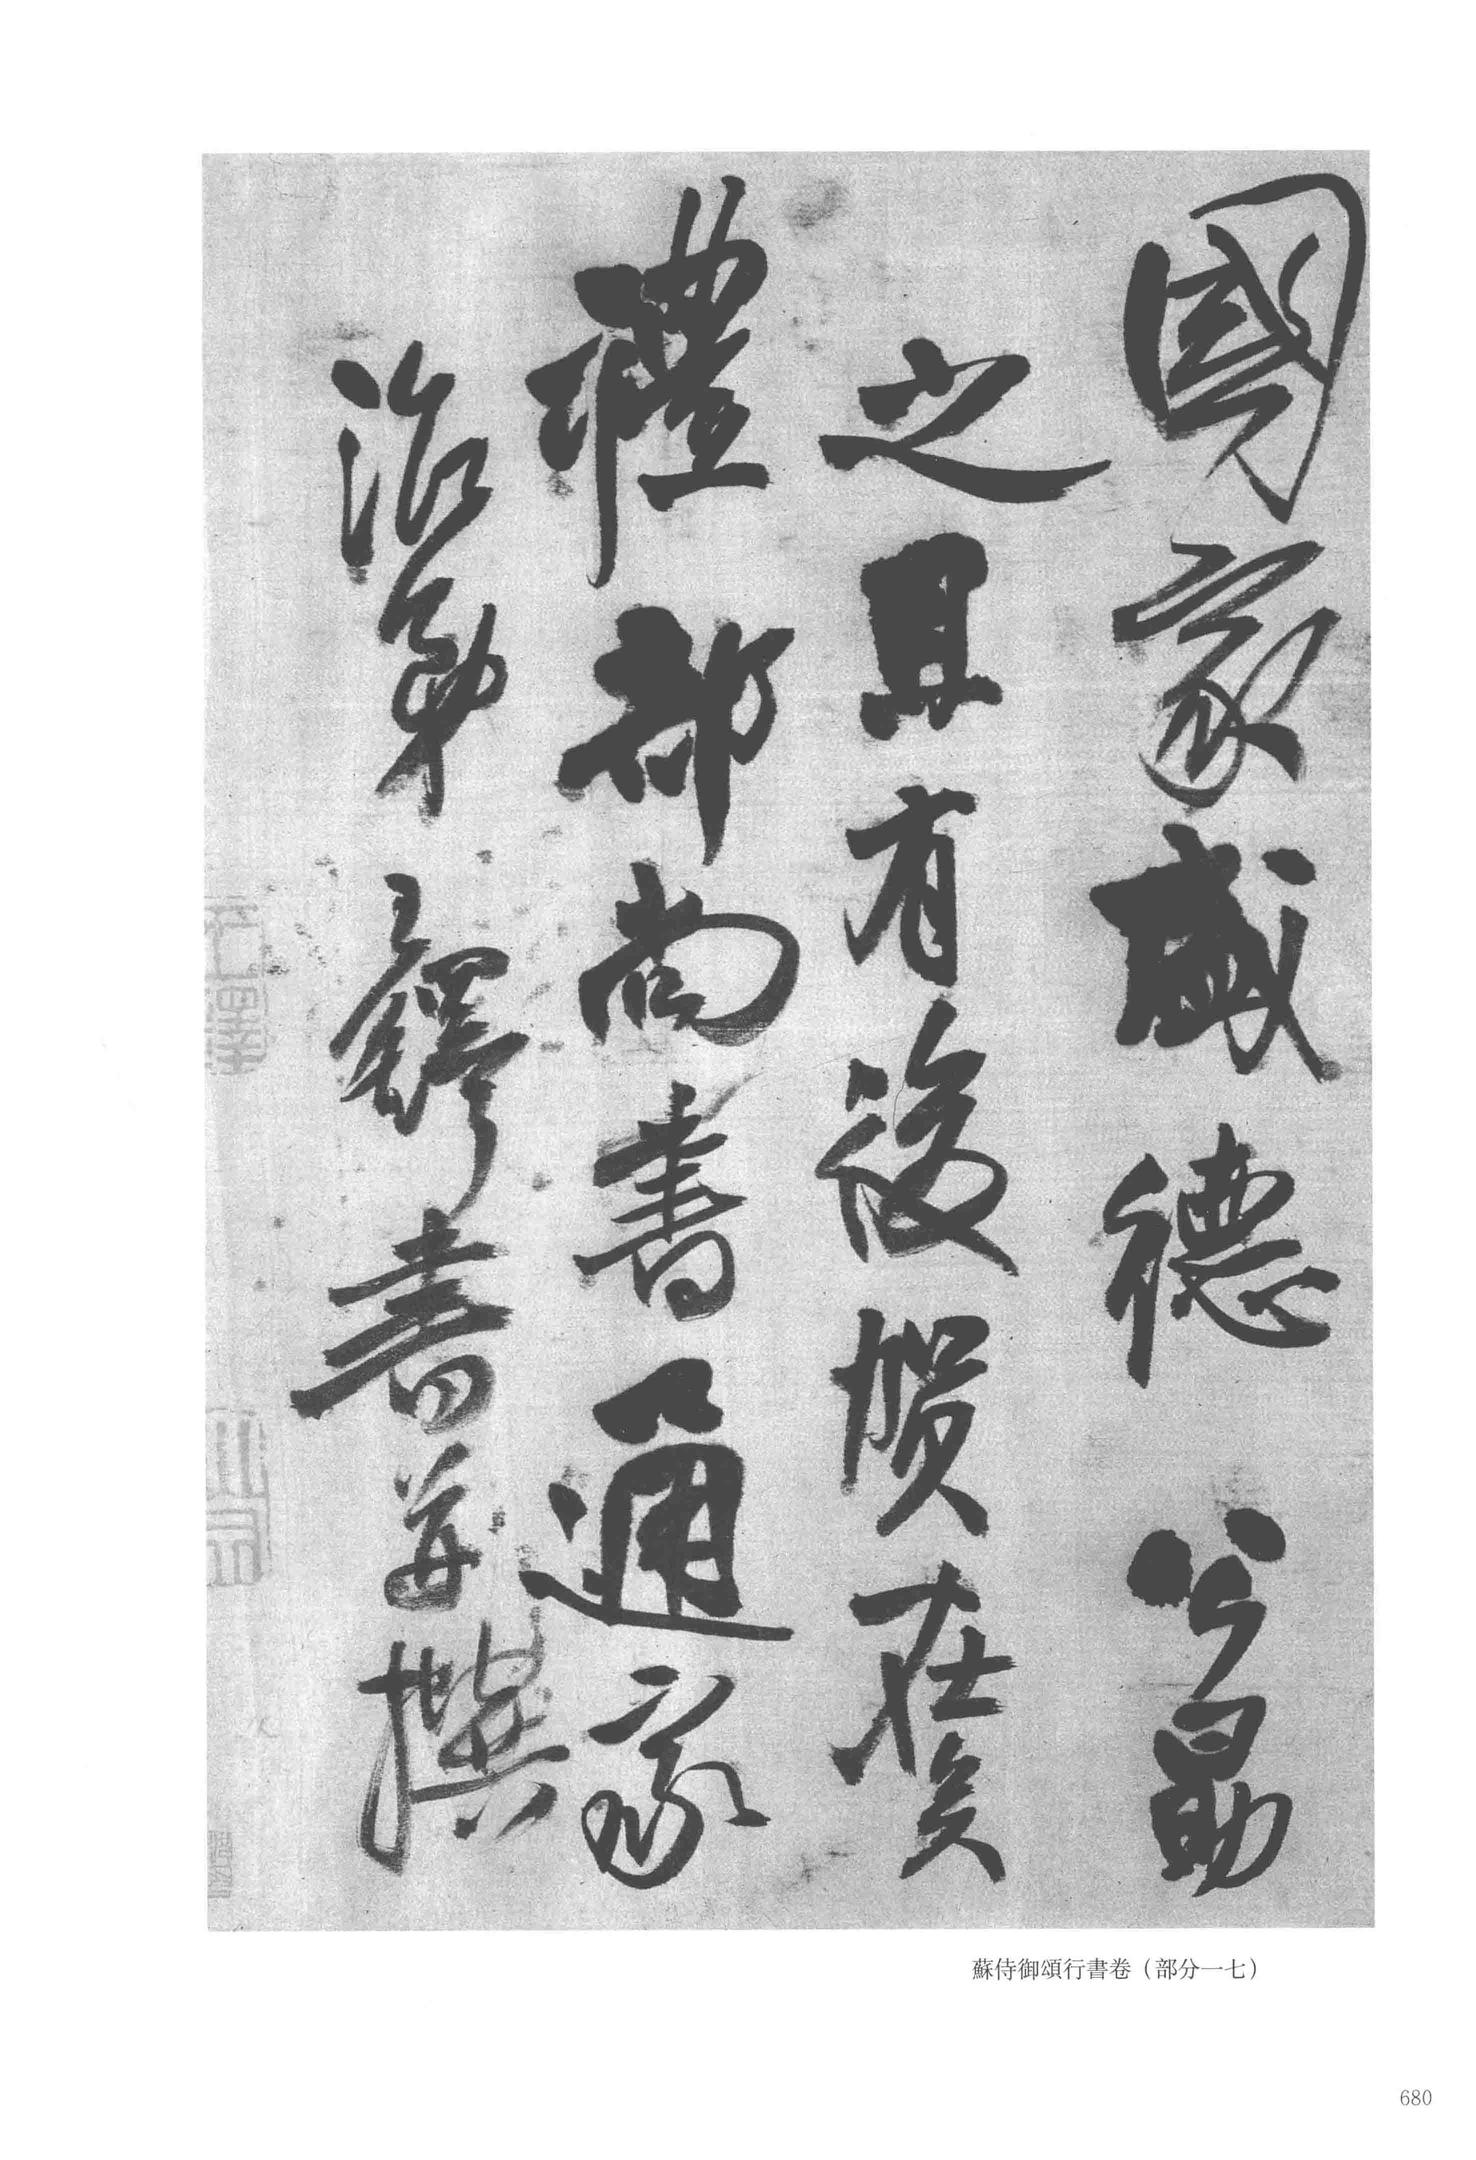 國家盛德 公勗
之且有後賀在矣
禮部尚書通家
治弟王鐸書并撰
蘇侍御頌行書卷（部分一七）
680